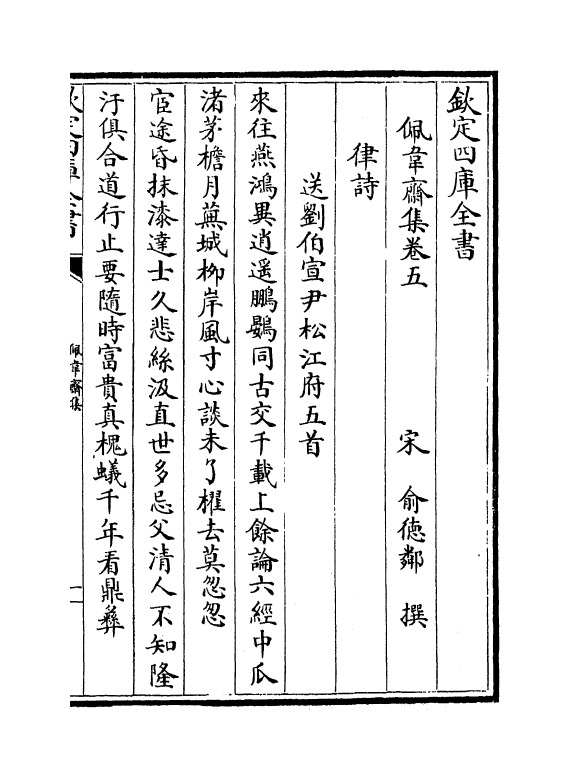 欽定四庫全書
佩韋齋集卷五　宋　俞德鄰　撰
律詩
送劉伯宣尹松江府五首
來往燕鴻異逍遥鵬鷃同古交千載上餘論六經中瓜
渚茅檐月蕪城柳岸風寸心談未了櫂去莫怱怱
宦途昏抹漆達士久悲絲汲直世多忌父清人不知隆
汙俱合道行止要隨時富貴真槐蟻千年看鼎彞
欽定四庫全書
佩韋齋集
一